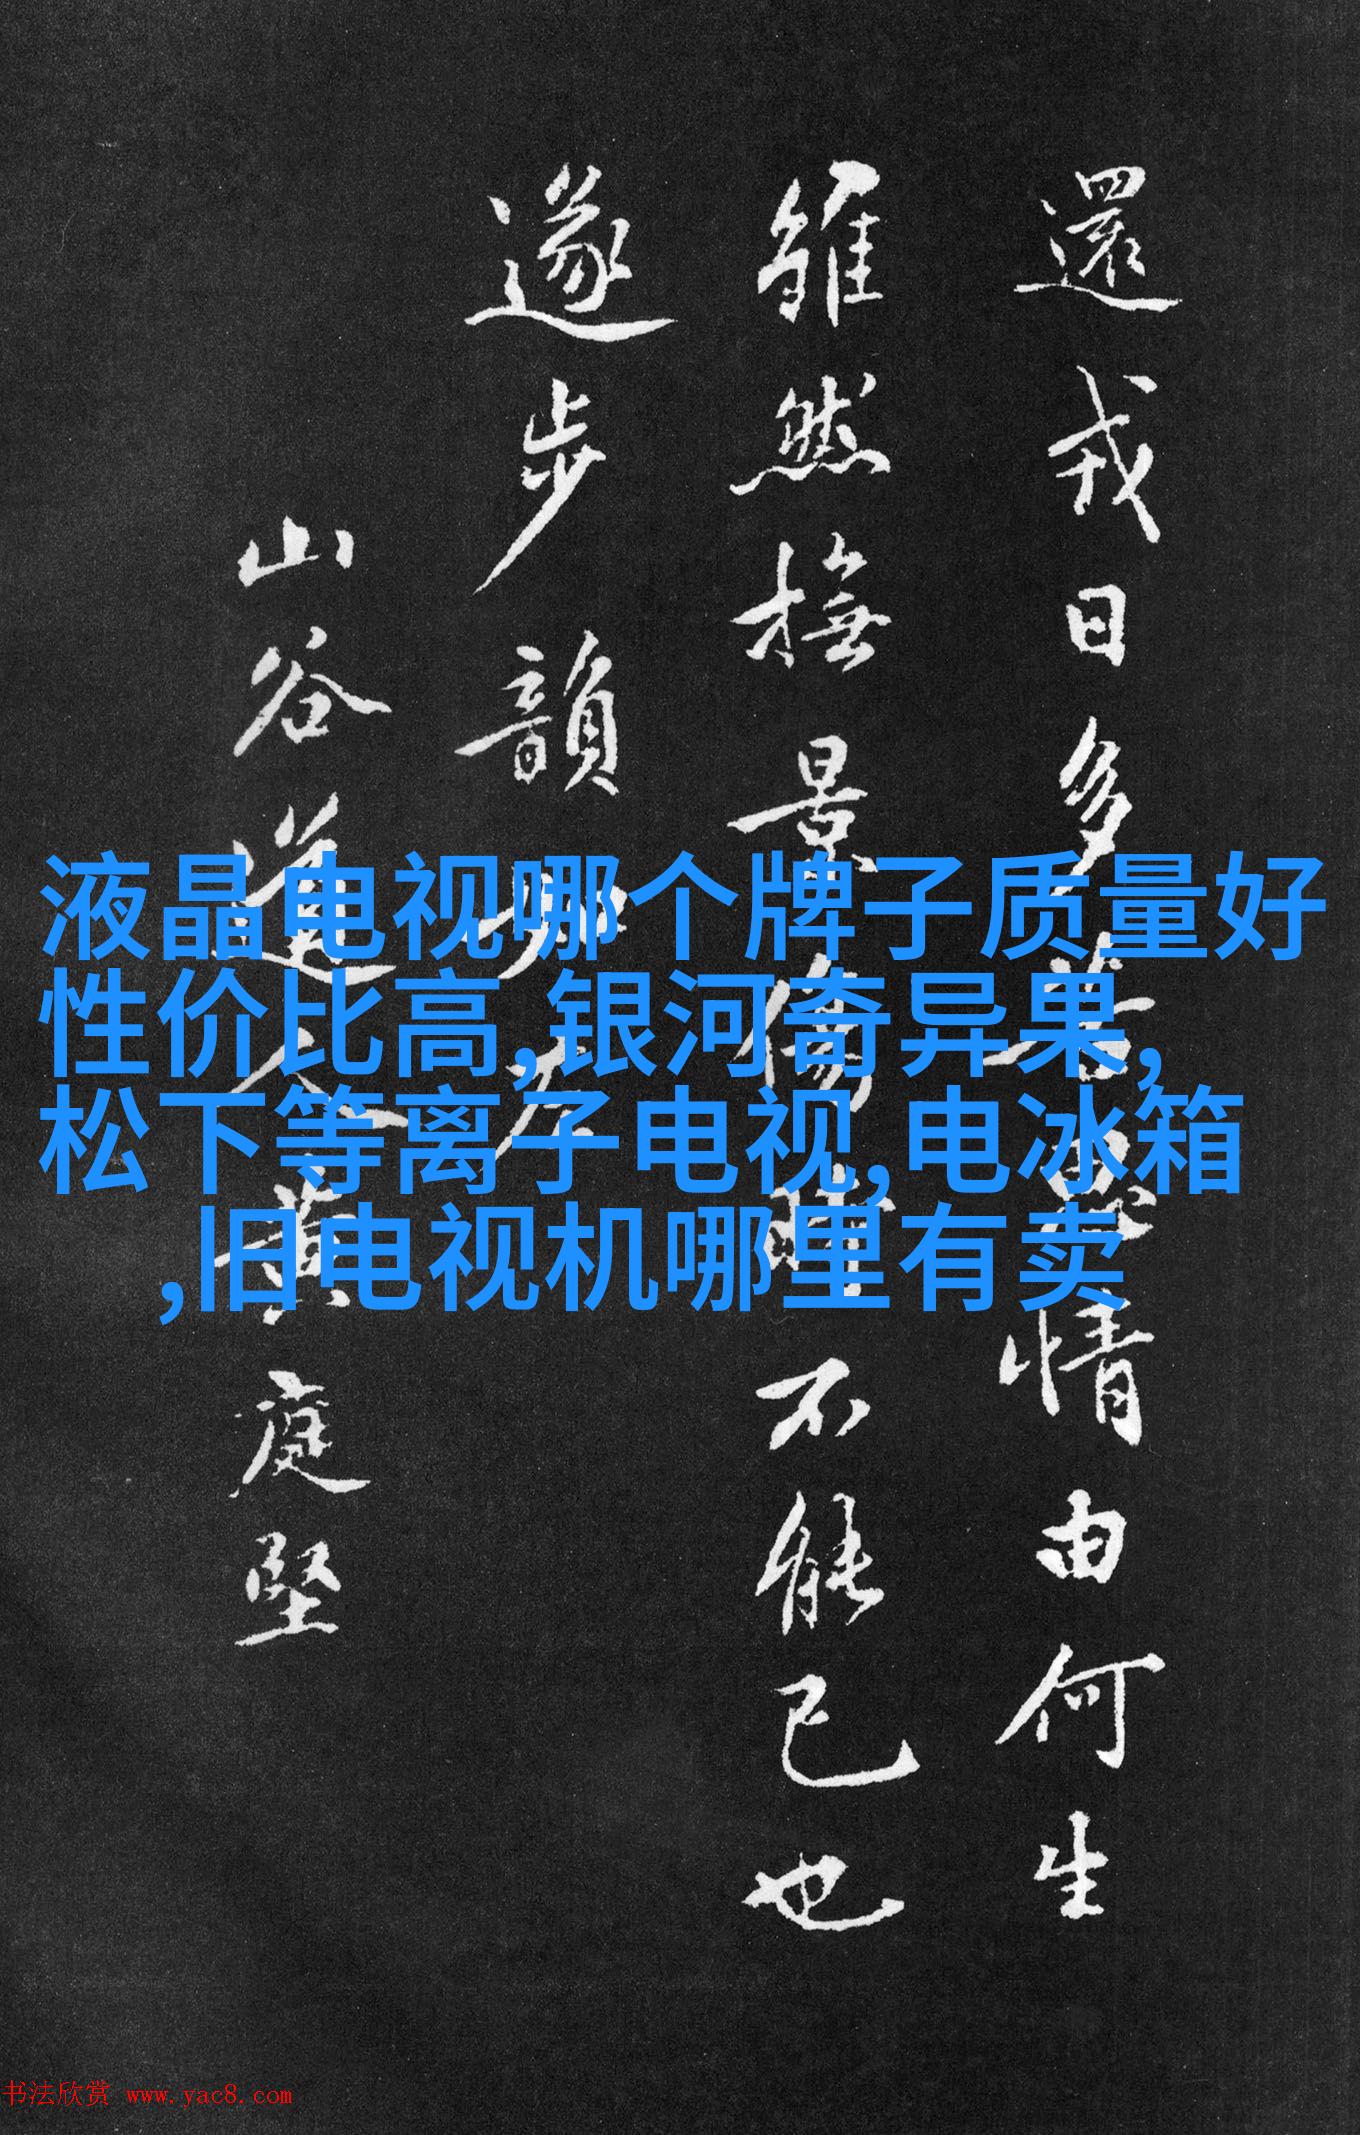 還戎日多
情由何生
雖然撫景傷
不能已也
遂步韻
山谷道人黄庭堅
液晶电视哪个牌子质量好
性价比高,银河奇异果,
松下等离子电视,电冰箱
,旧电视机哪里有卖
书法欣赏 www.yac8.com